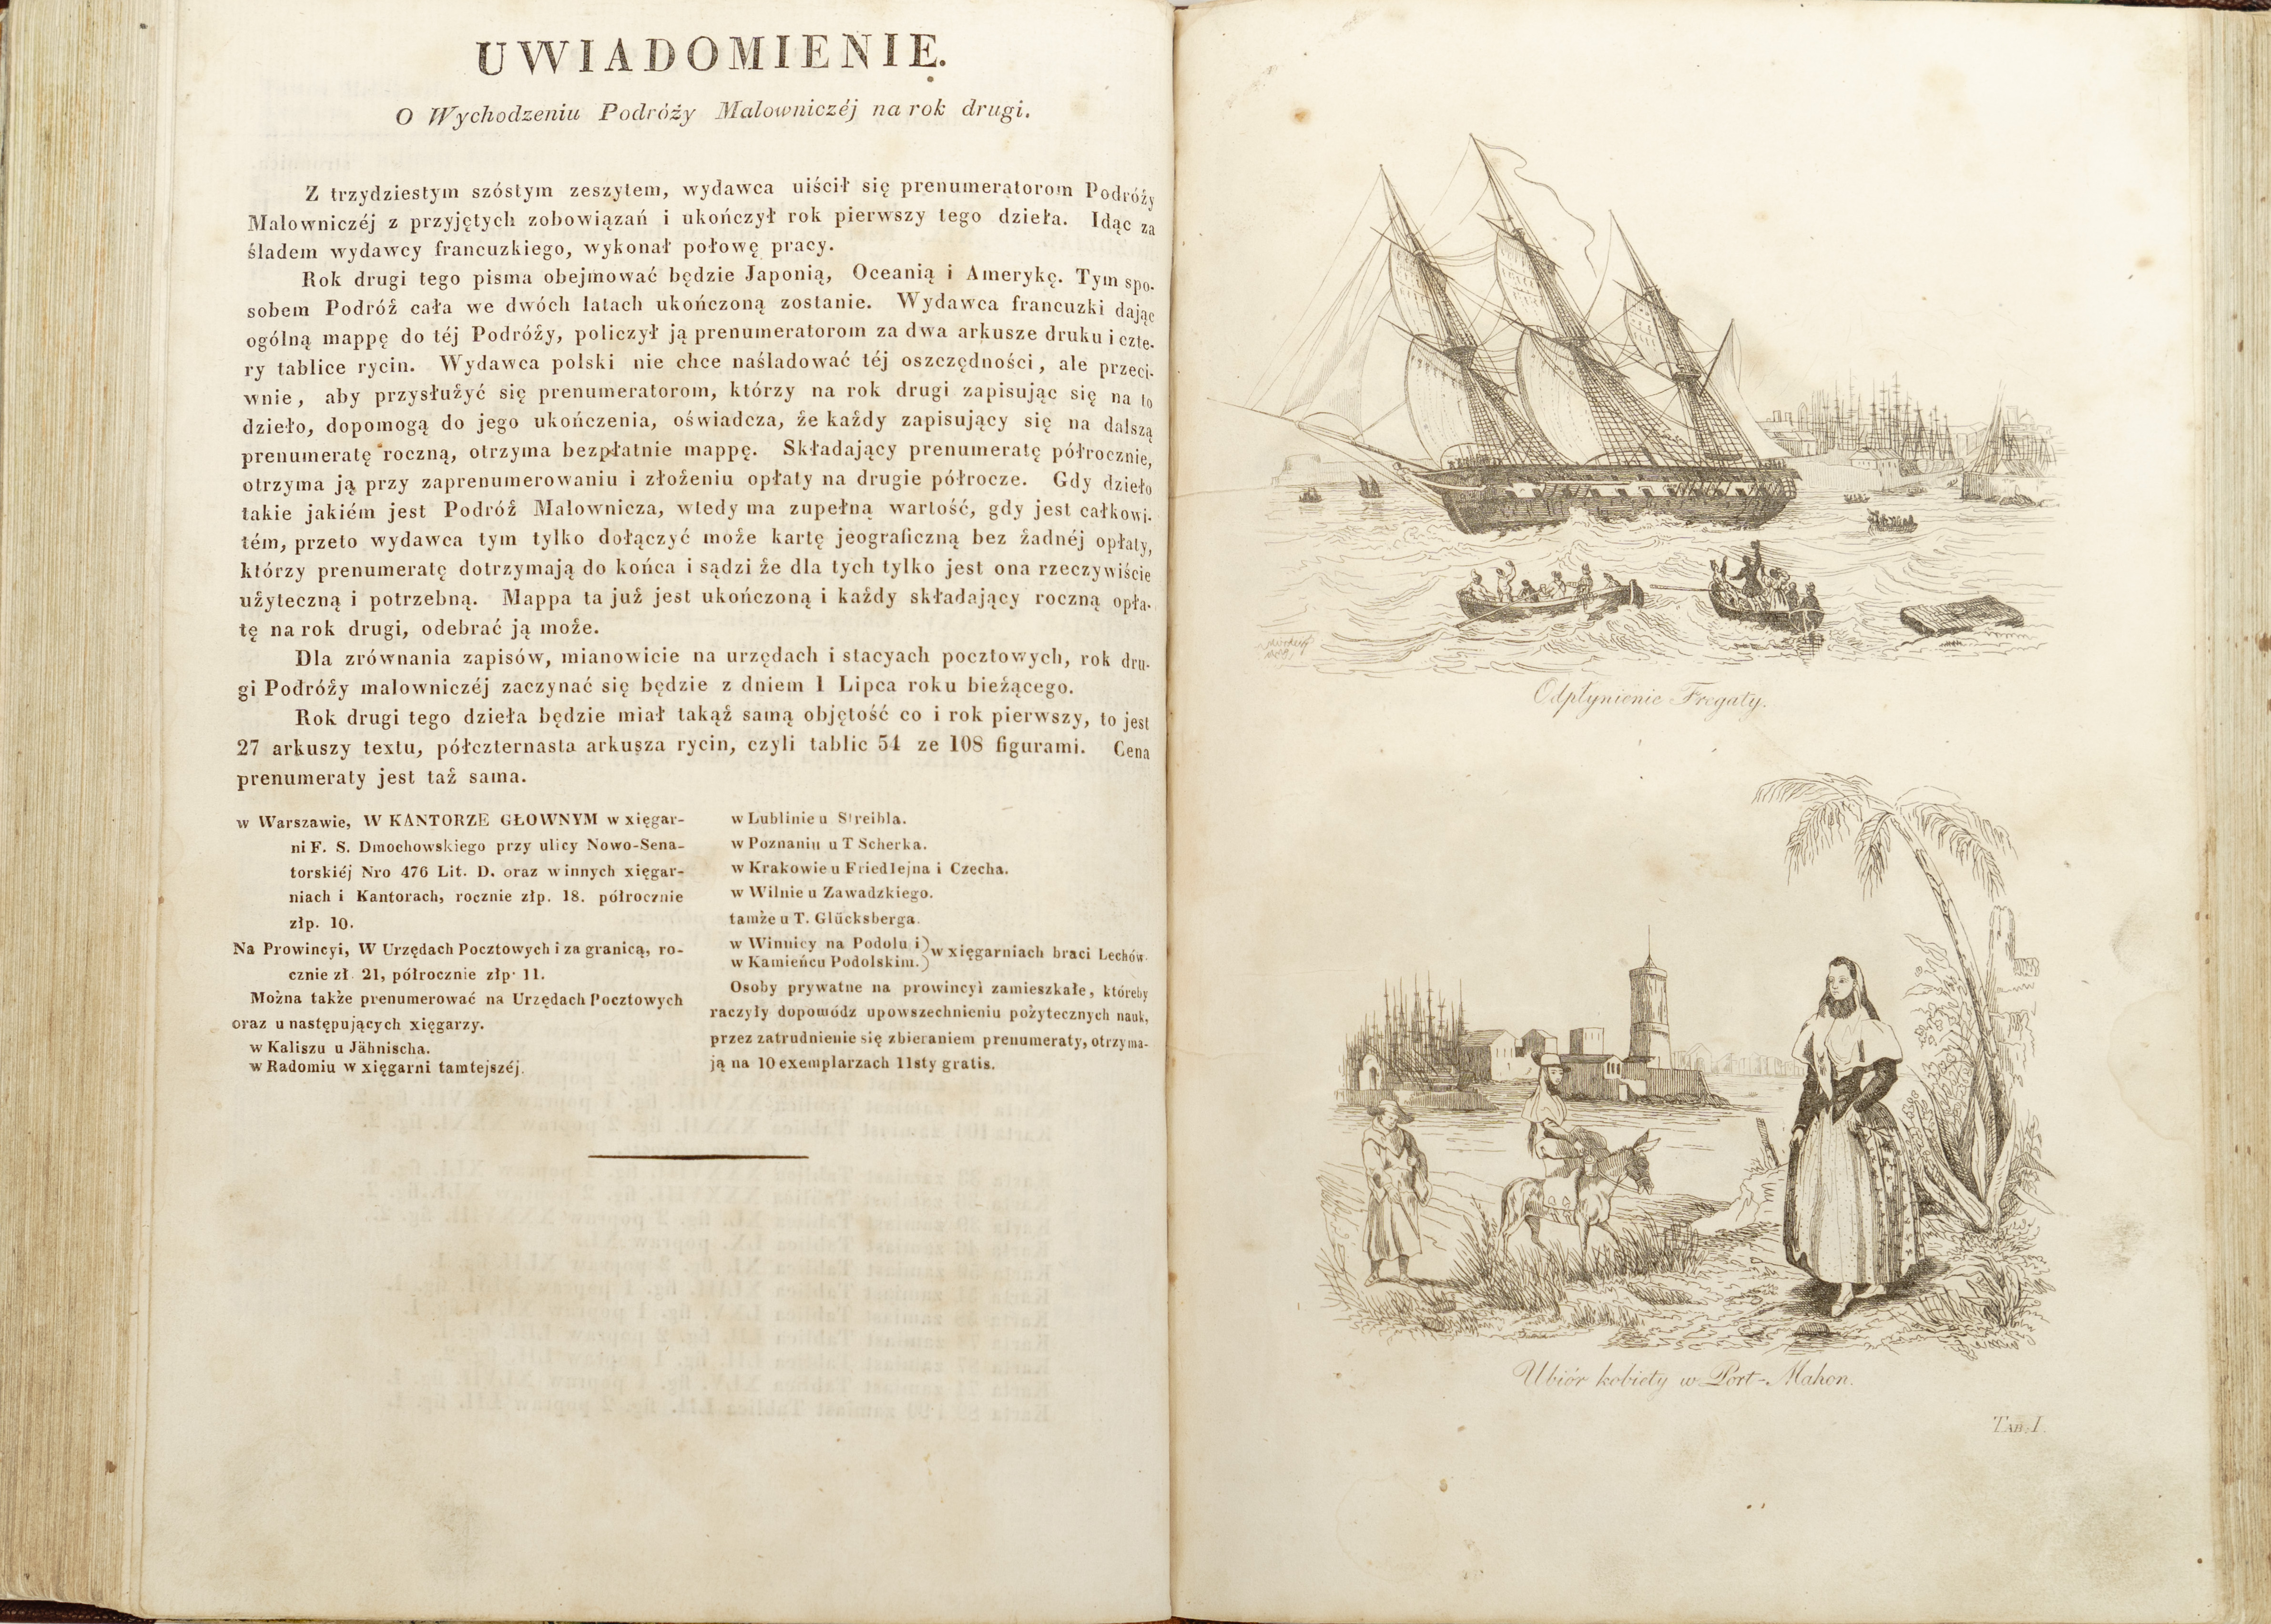 UWIADOMIENIE.
O Wychodzeniu Podróży Malowniczéj na rok drugi.
Z trzydziestym szóstym zeszytem, wydawca uiścił się prenumeratorom Podróży
Malowniczéj z przyjętych zobowiązań i ukończył rok pierwszy tego dzieła. Idąc za
śladem wydawcy francuzkiego, wykonał połowę pracy.
Rok drugi tego pisma obejmować będzie Japonią, Oceanią i Amerykę. Tym spo-
sobem Podróż cała we dwóch latach ukończoną zostanie. Wydawca francuzki dając
ogólną mappę do téj Podróży, policzył ją prenumeratorom za dwa arkusze druku i czte-
ry tablice rycin. Wydawca polski nie chce naśladować téj oszczędności, ale przeci-
wnie, aby przysłużyć się prenumeratorom, którzy na rok drugi zapisując się na to
dzieło, dopomogą do jego ukończenia, oświadcza, że każdy zapisujący się na dalszą
prenumeratę roczną, otrzyma bezpłatnie mappę. Składający prenumeratę półrocznie,
otrzyma ją przy zaprenumerowaniu i złożeniu opłaty na drugie półrocze. Gdy dzieło
takie jakiém jest Podróż Malownicza, wtedy ma zupełną wartość, gdy jest całkowi-
tém, przeto wydawca tym tylko dołączyć może kartę jeograficzną bez żadnéj opłaty,
którzy prenumeratę dotrzymają do końca i sądzi że dla tych tylko jest ona rzeczywiście
użyteczną i potrzebną. Mappa ta już jest ukończoną i każdy składający roczną opła-
tę na rok drugi, odebrać ją może.
Dla zrównania zapisów, mianowicie na urzędach i stacyach pocztowych, rok dru-
gi Podróży malowniczéj zaczynać się będzie z dniem 1 Lipca roku bieżącego.
Rok drugi tego dzieła będzie miał takąż samą objętość co i rok pierwszy, to jest
27 arkuszy textu, półczternasta arkusza rycin, czyli tablic 54 ze 108 figurami. Cena
prenumeraty jest taż sama.
w Warszawie, W KANTORZE GŁOWNYM w xięgar-
ni F. S. Dmochowskiego przy ulicy Nowo-Sena-
torskiéj Nro 476 Lit. D. oraz w innych xięgar-
niach i Kantorach, rocznie złp. 18. półrocznie
złp. 10.
Na Prowincyi, W Urzędach Pocztowych i za granicą, ro-
cznie zł. 21, półrocznie złp. 11.
Można także prenumerować na Urzędach Pocztowych
oraz u następujących xięgarzy.
w Kaliszu u Jähnischa.
w Radomiu w xięgarni tamtejszéj.
w Lublinie u Streibla.
w Poznaniu u T Scherka.
w Krakowie u Friedlejna i Czecha.
w Wilnie u Zawadzkiego.
tamże u T. Glücksberga.
w Winnicy na Podolu i)
w Kamieńcu Podolskim.) w xięgarniach braci Lechów.
Osoby prywatne na prowincyi zamieszkałe, któreby
raczyły dopomódz upowszechnieniu pożytecznych nauk,
przez zatrudnienie się zbieraniem prenumeraty, otrzyma-
ją na 10 exemplarzach 11sty gratis.
Odpłynienie Fregaty.
Ubiór kobiety w Port-Mahon.
TAB. I.